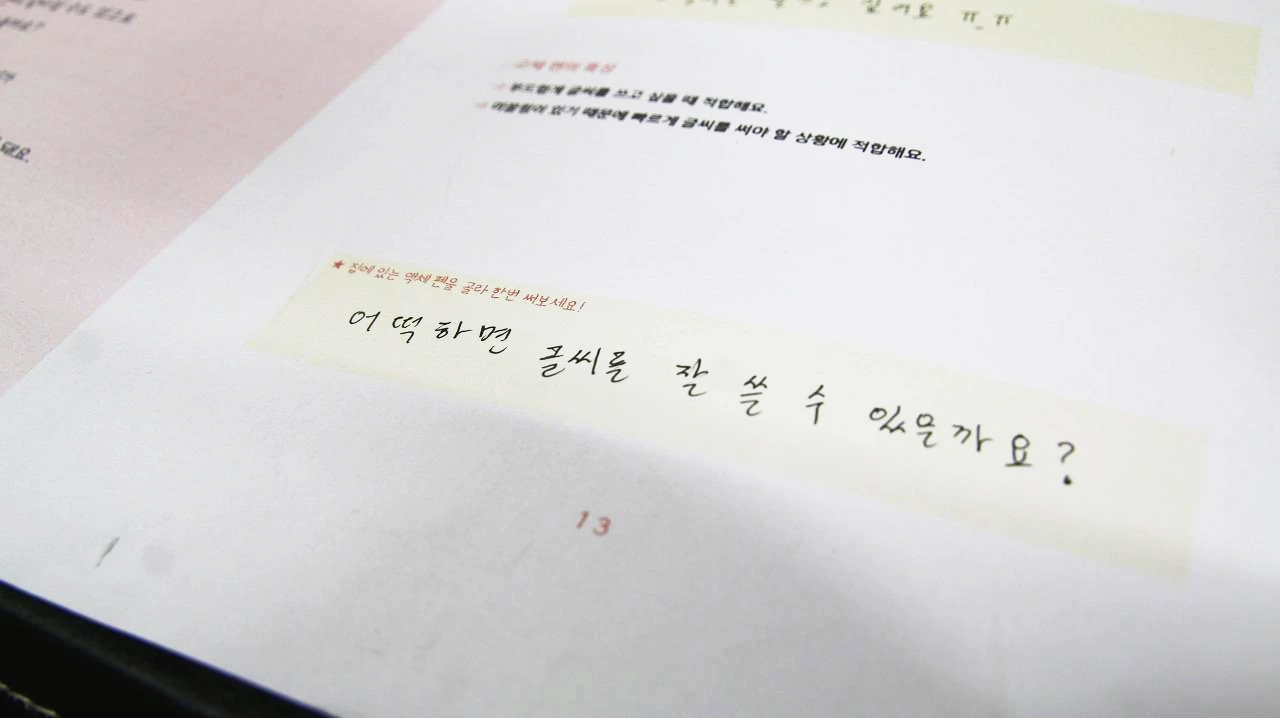 싶어요 ㅠ_ㅠ
부드럽게 글씨를 쓰고 싶을 때 적합해요.
있기 때문에 빠르게 글씨를 써야 할 상황에 적합해요.
★ 집에 있는 액세 펜을 골라 한번 써보세요!
어떡하면 글씨를 잘 쓸 수 있을까요?
13
돼요.